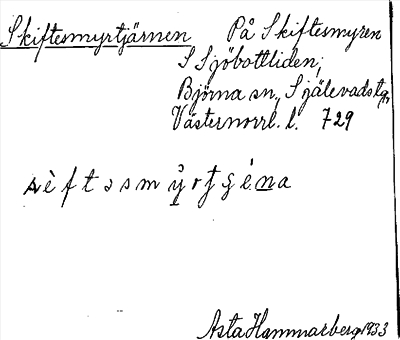 Skiftesmyrtjärnen På Skiftesmyren
S Sjöbottliden;
Björna sn, Själevads tg,
Västernorrl. l. 729
Asta Hammarberg 1933